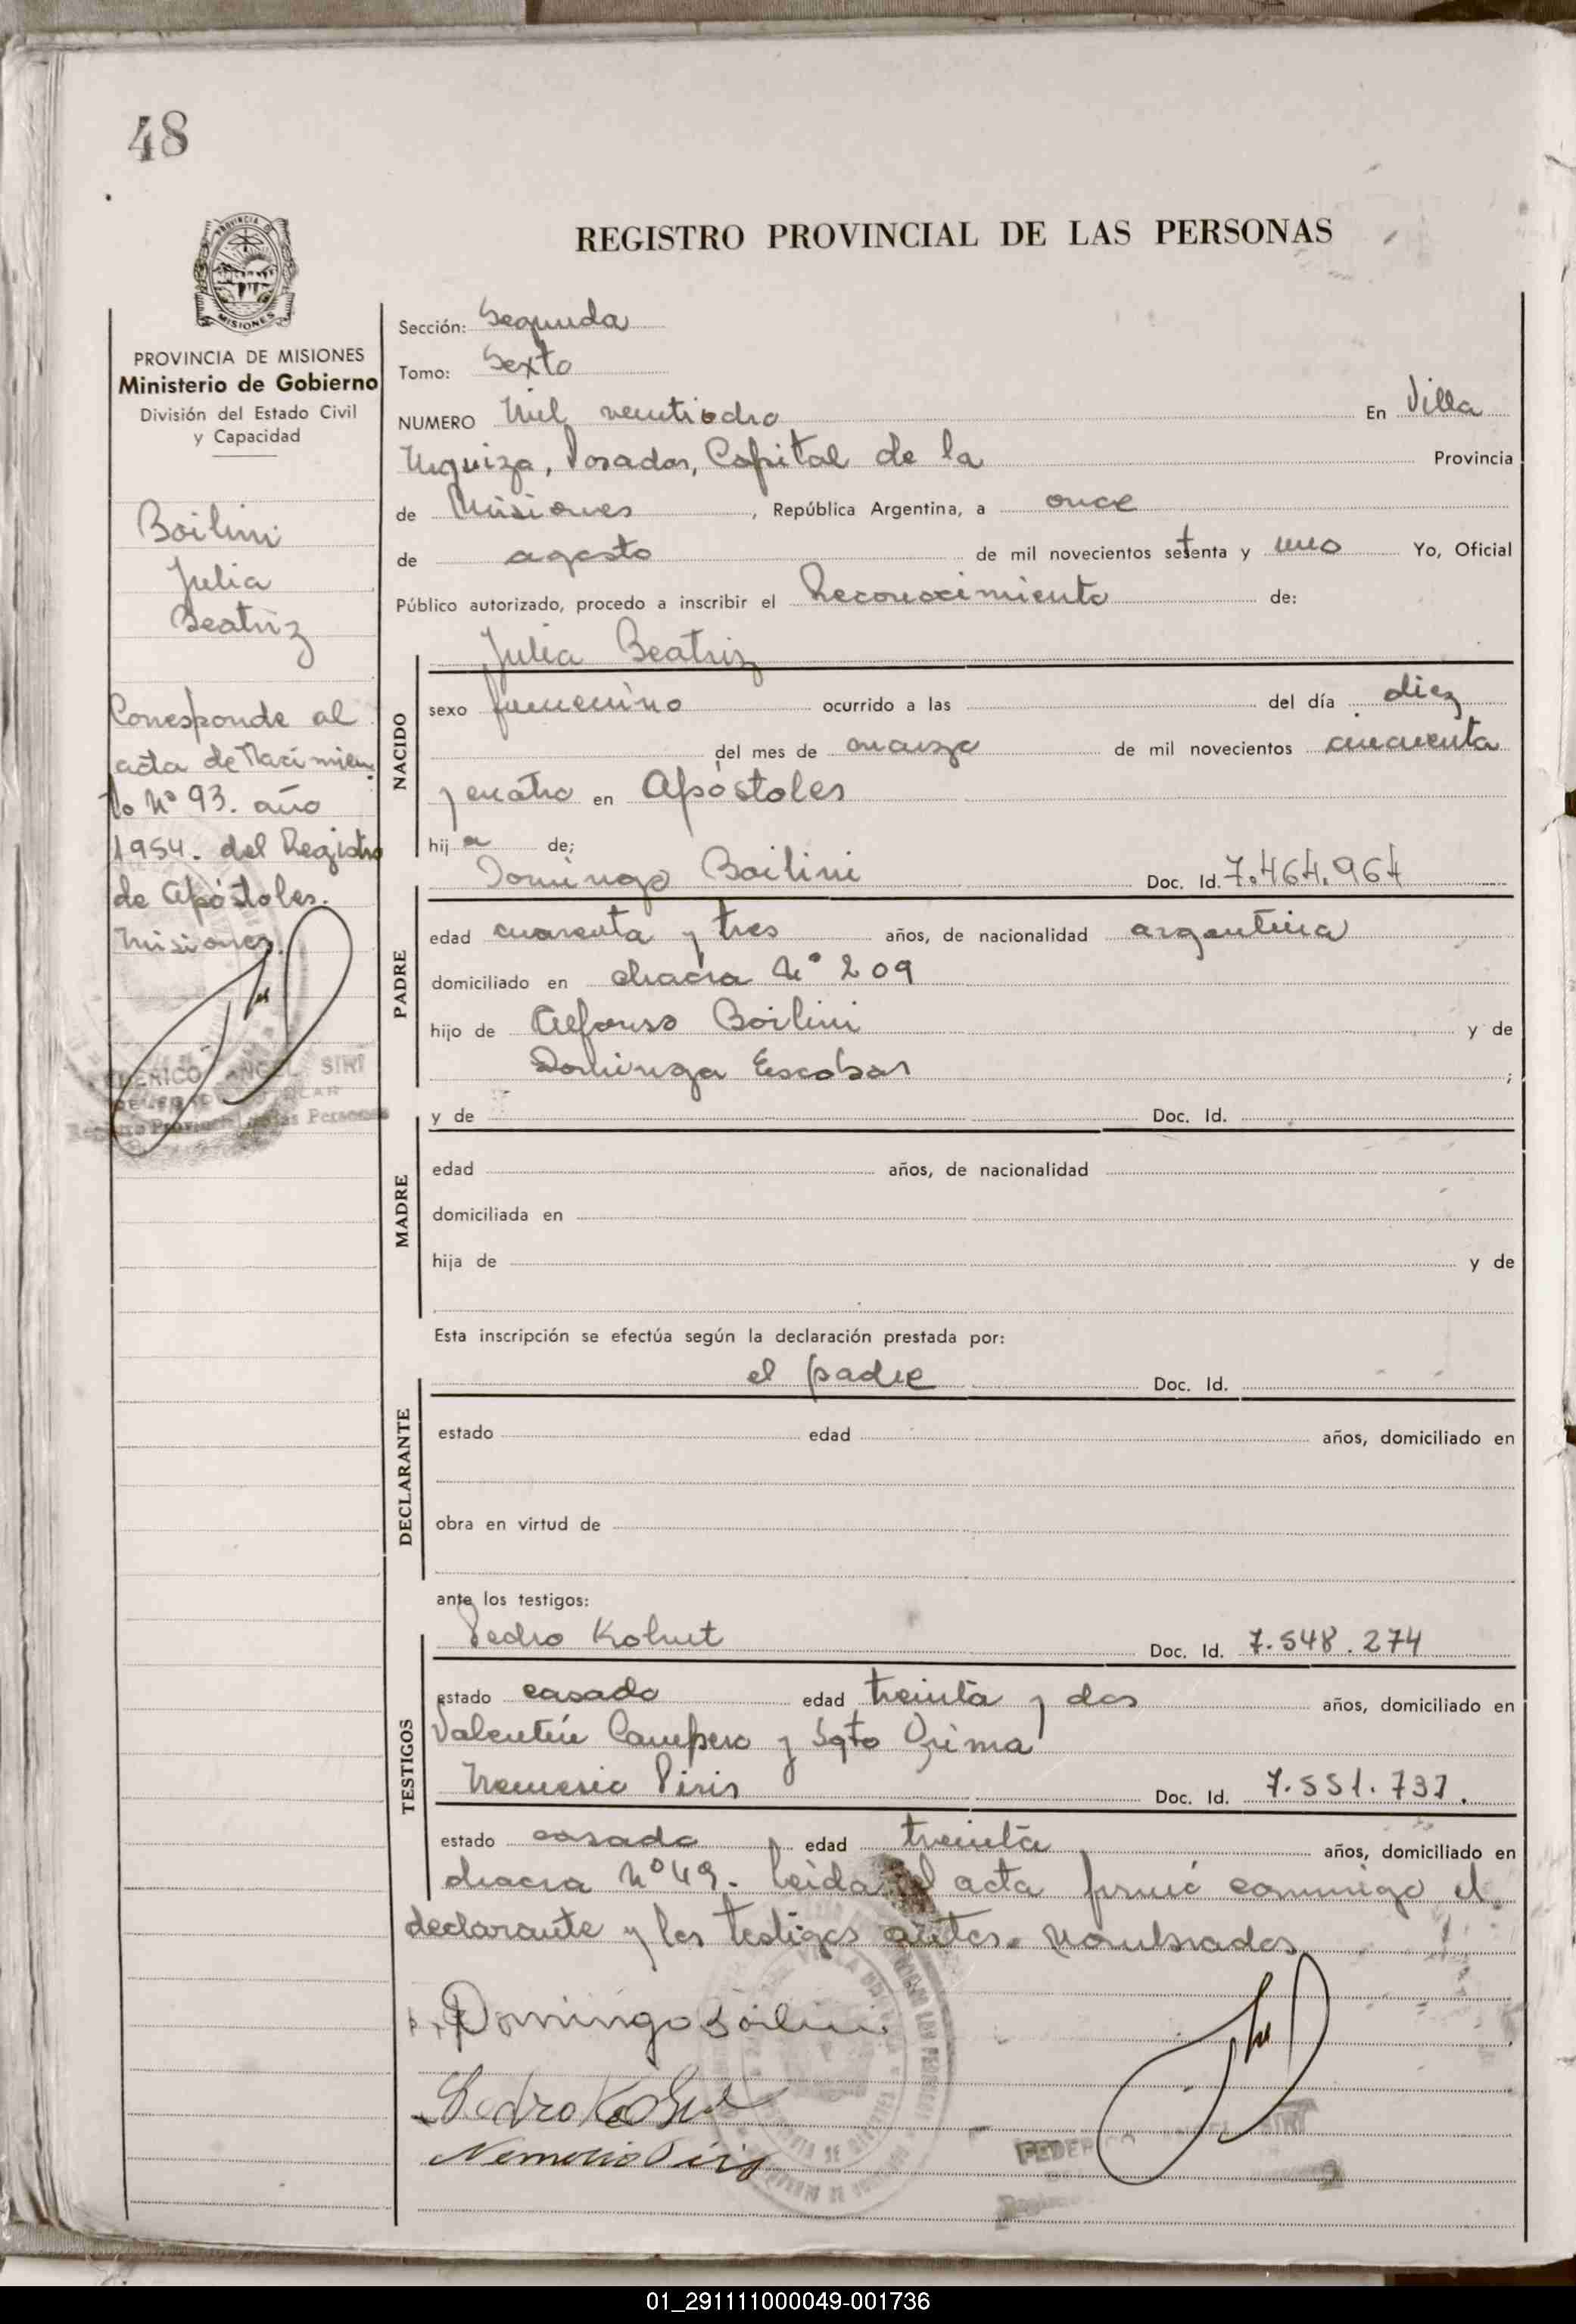 48
PROVINCIA DE
MISIONES
REGISTRO PROVINCIAL DE LAS PERSONAS
PROVINCIA DE MISIONES
Ministerio de Gobierno
División del Estado Civil
y Capacidad
Boilini
Julia
Beatriz
Corresponde al
acta de Nacimien
to Nº 93. año
1954. del Registro
de Apóstoles.
Misiones.
FEDERICO ANGEL SIRI
Registro Provincial de las Personas
Sección: Segunda
Tomo: Sexto
NUMERO Mil veintiocho En Villa
Urquiza, Posadas, Capital de la Provincia
de Misiones, República Argentina, a once
de agosto de mil novecientos setenta y uno Yo, Oficial
Público autorizado, procedo a inscribir el Reconocimiento de:
Julia Beatriz
NACIDO
sexo femenino ocurrido a las del día diez
del mes de marzo de mil novecientos cincuenta
y cuatro en Apóstoles
hija de;
Domingo Boilini Doc. Id. 7.464.964
PADRE
edad cuarenta y tres años, de nacionalidad argentina
domiciliado en chacra Nº 209
hijo de Alfonso Boilini y de
Dominga Escobar ;
y de Doc. Id.
MADRE
edad años, de nacionalidad
domiciliada en
hija de y de
Esta inscripción se efectúa según la declaración prestada por:
el padre Doc. Id.
DECLARANTE
estado edad años, domiciliado en
obra en virtud de
ante los testigos:
Pedro Kohut Doc. Id. 7.548.274
TESTIGOS
estado casado edad treinta y dos años, domiciliado en
Valentín Campero y Sgto
Nemesio Piris Doc. Id. 7.551.737.
estado casado edad treinta años, domiciliado en
chacra Nº 49. Leida el acta firmó conmigo el
declarante y los testigos antes nombrados
Domingo Boilini
Pedro
Nemesio Piris
FEDERICO ANGEL SIRI
01_291111000049-001736